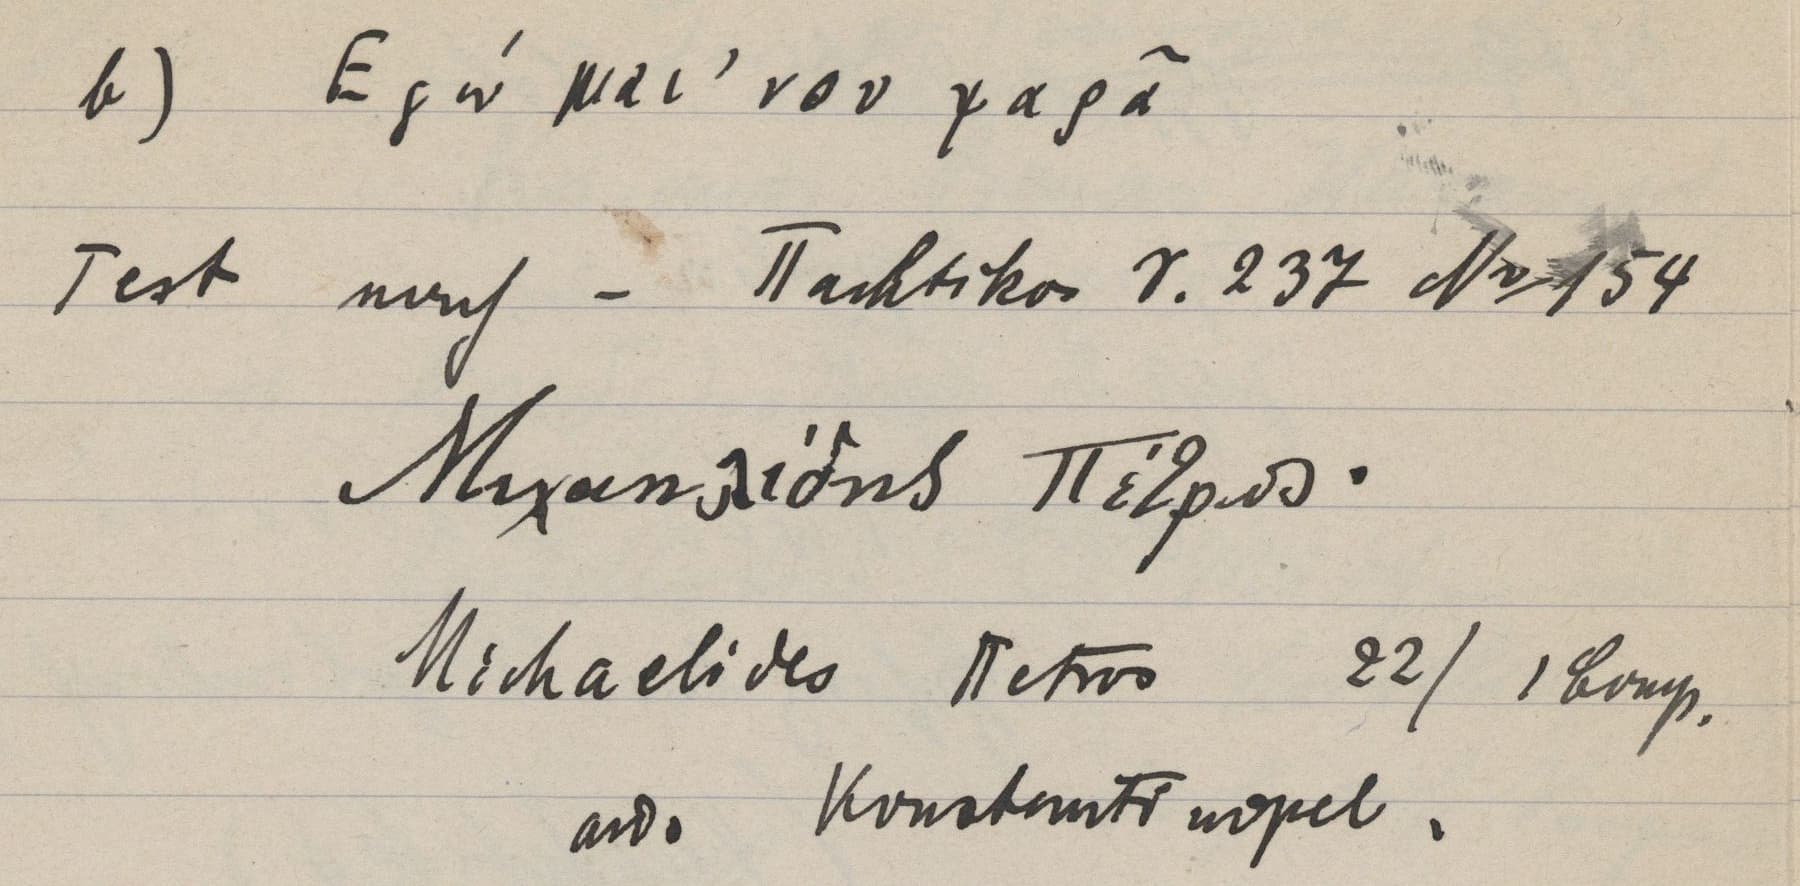 b) Εγώ μαι' νου χαρᾶ
Text nach - Πachtikos S. 237 Nr 154
Μιχαηλίδης Πέτρος.
Michaelides Πetros 22/ 1 Comp.
aus. Konstantinopel.